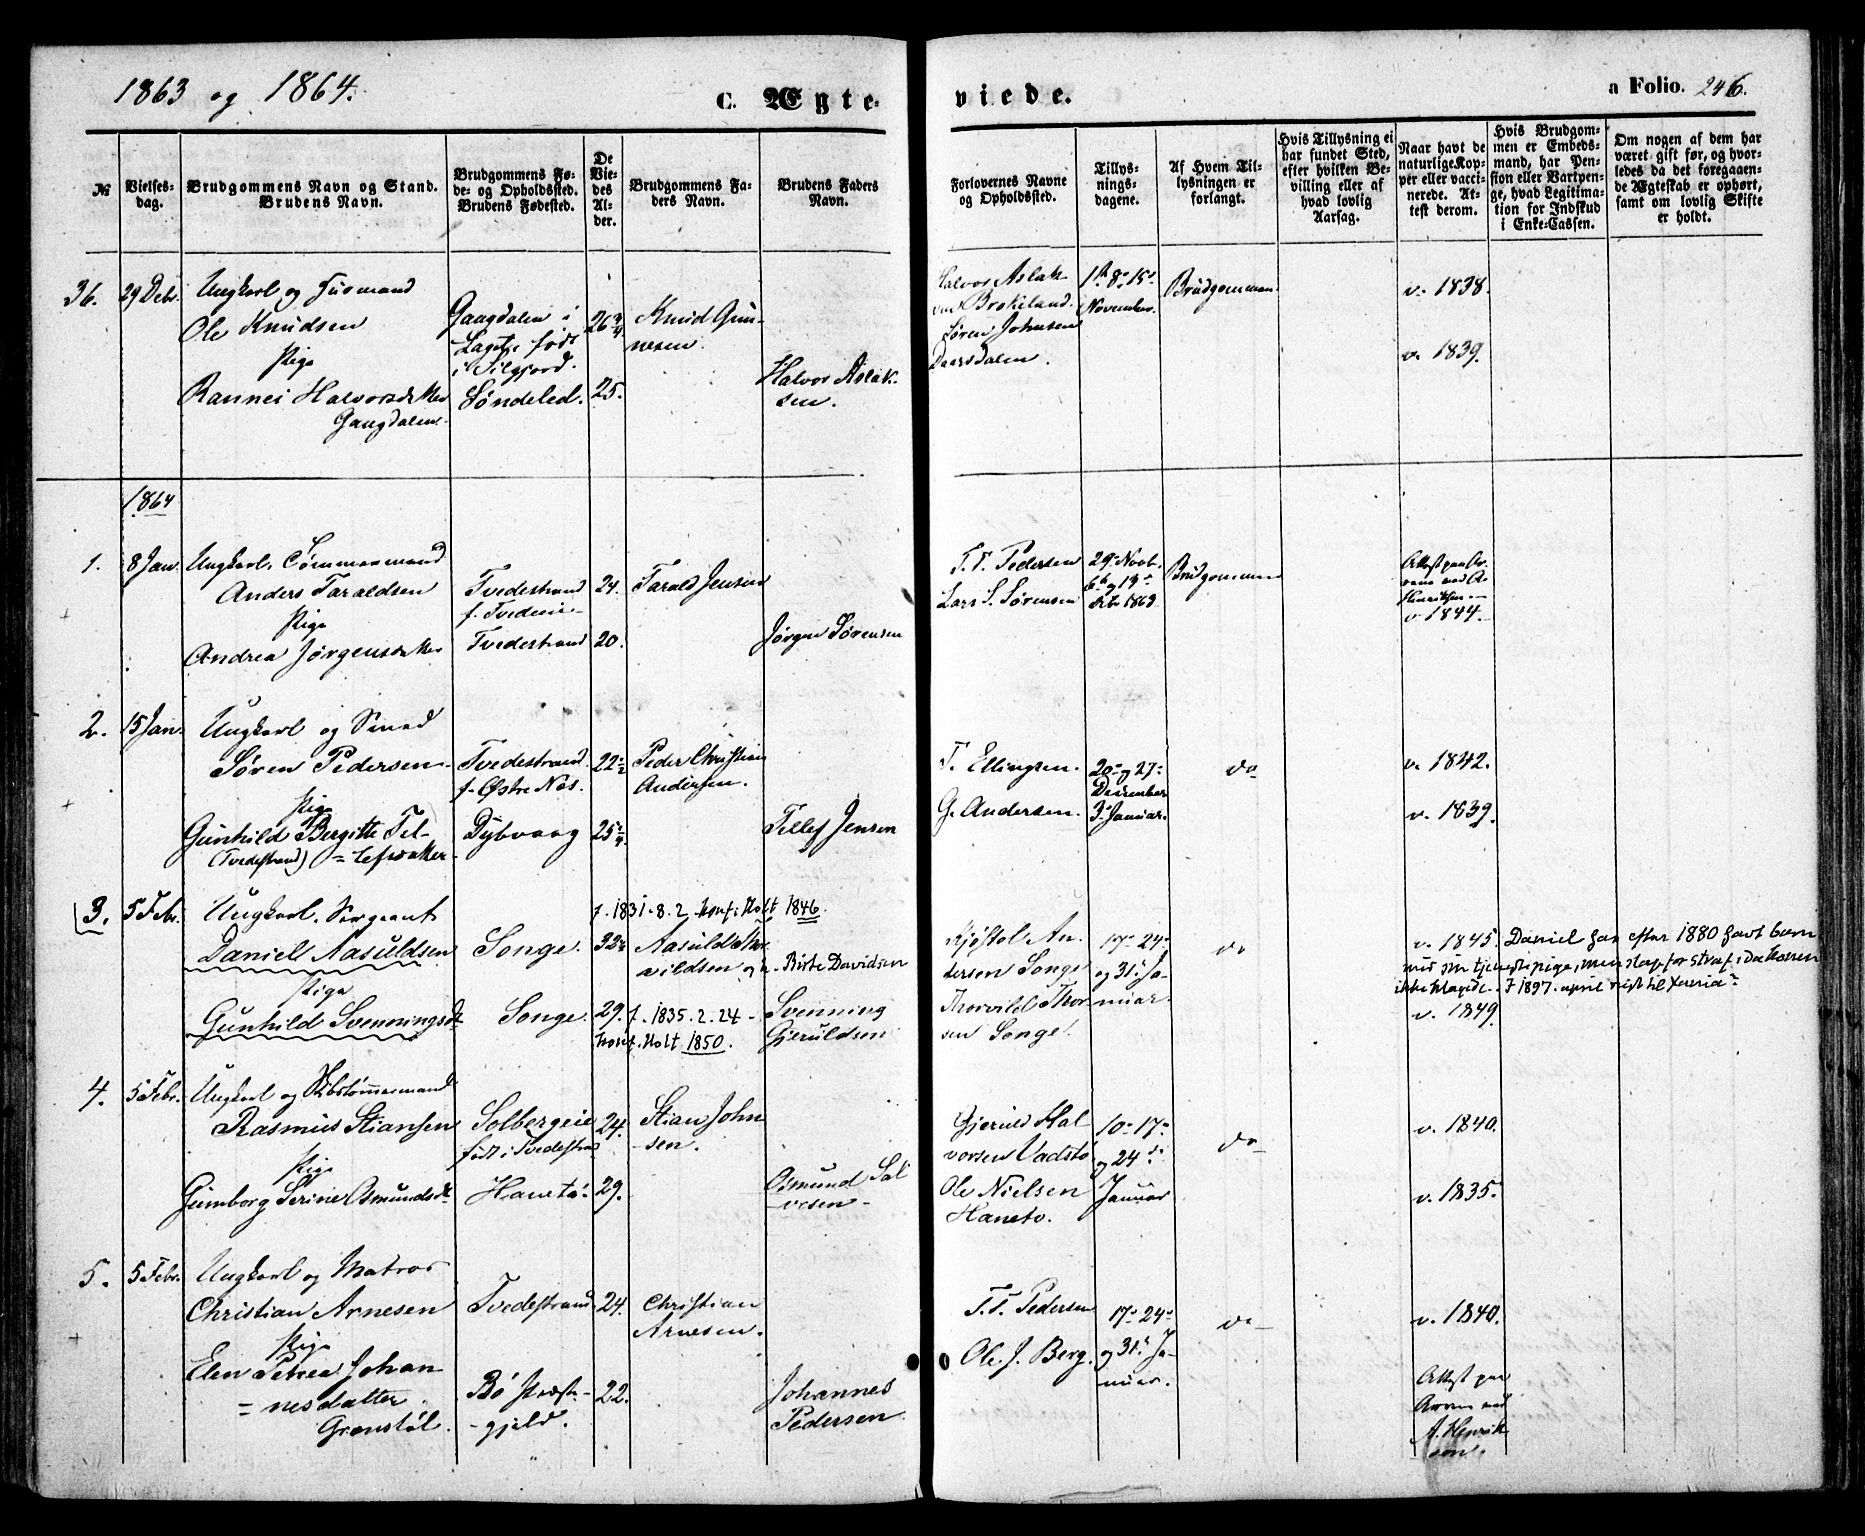 1863 og 1864.
C. Ægte-
viede.
a Folio. 246.
No
Vielses-
dag.
Brudgommens Navn og Stand.
Brudens Navn.
Brudgommens Fø-
de- og Opholdssted.
Brudens Fødested.
De
Vie-
des
Al-
der.
Brudgommens Fa-
ders Navn.
Brudens Faders
Navn.
Forlovernes Navne
og Opholdssted.
Tillys-
nings-
dagene.
Af Hvem Til-
lysningen er
forlangt.
Hvis Tillysning ei
har fundet Sted,
efter hvilken Be-
villing eller af
hvad lovlig
Aarsag.
Naar havt de
naturlige Kop-
per eller vacci-
nerede. At-
test derom.
Hvis Brudgom-
men er Embeds-
mand, har Pen-
sion eller Vartpen-
ge, hvad Legitima-
tion for Indskud
i Enke-Cassen.
Om nogen af dem har
været gift før, og hvor-
ledes da det foregaaen-
de Ægteskab er ophørt,
samt om lovlig Skifte
er holdt.
36. 29 Debr. Ungkarl og Husmand
Ole Knudsen
Pige
Rannei Halvorsdatter
Gaagdalen
Gaagdalen i
født
i Silgjord.
Søndeled.
26 3/4
25.
Knud Gun-
nesen.
Halvor Aslak-
sen.
Halvor Aslak-
sen Brokeland.
Søren Johnsen
Daarsdalen.
1ste 8de 15de
November.
Brudgommen
v. 1838.
v. 1839.
1864
1. 8 Jan. Ungkarl, Tømmermand
Anders Taraldsen
Pige
Andrea Jørgensdatter
Tvedestrand
f. Tvedeeie
Tvedestrand
24.
20.
Tarald Jensen
Jørgen Sørensen
T. T. Pedersen
Lars S. Sørensen
29de Novb.
6te og 13de
Debr 1863.
Brudgommen
Attest paa
ved A.
Henriksen
v. 1844.
2. 15 Jan. Ungkarl og Smed
Søren Pedersen
Pige
Gunhild Bergitte Tel-
(Tvedestrand) = lefsdatter
Tvedestrand
f. Østre Næs.
Dybvaag
22 1/2
25 1/4
Peder Christian
Andersen.
Tellef Jensen
T. Ellingsen.
G. Andersen.
20de og 27de
December
3die Januar.
do
v. 1842.
v. 1839.
3. 5 Febr. Ungkarl, Sergeant
Daniell Aasuldsen
Pige
Gunhild Svenningsdtr
Songe.
Songe.
f. 1831.8.2 konf. i Holt 1846.
32
29. f. 1835.2.24 -
konf. Holt 1850.
Aasuld Thor-
vildsen og h. Birte Davidsen
Svenning
Gjeruldsen
Kjøstol An-
dersen Songe
Thorvild Thor-
sen Songe.
17de 24de
og 31te Ja-
nuar.
do
v. 1845.
v. 1849.
Daniel har efter 1880 havt barn
med sin tjenestepige, men slap for straf, da konen
ikke klagede. I 1897 april reist til
4. 5 Febr. Ungkarl og Skibstømmermand
Rasmus Stiansen
Pige
Gumborg Serine Osmundsdtr
Solbergeie
født i Tvedestrand
Hanetø
24.
29.
Stian John-
sen.
Osmund Sal-
vesen
Gjeruld Hal-
vorsen Vadstø
Ole Nielsen
Haneto.
10de 17de
og 24de
Januar
do
v. 1840.
v. 1835.
5. 5 Febr. Ungkarl og Matros
Christian Arnesen
Pige
Elen Petrea Johan
= nesdatter.
Grønstøl.
Tvedestrand
Bø Præste-
gjeld.
24.
22.
Christian
Arnesen.
Johannes
Pedersen
T. T. Pedersen
Ole J. Berg.
17de 24de
og 31te Ja-
nuar.
do
v. 1840.
Attest paa
Arven ved
A. Henrik-
sen